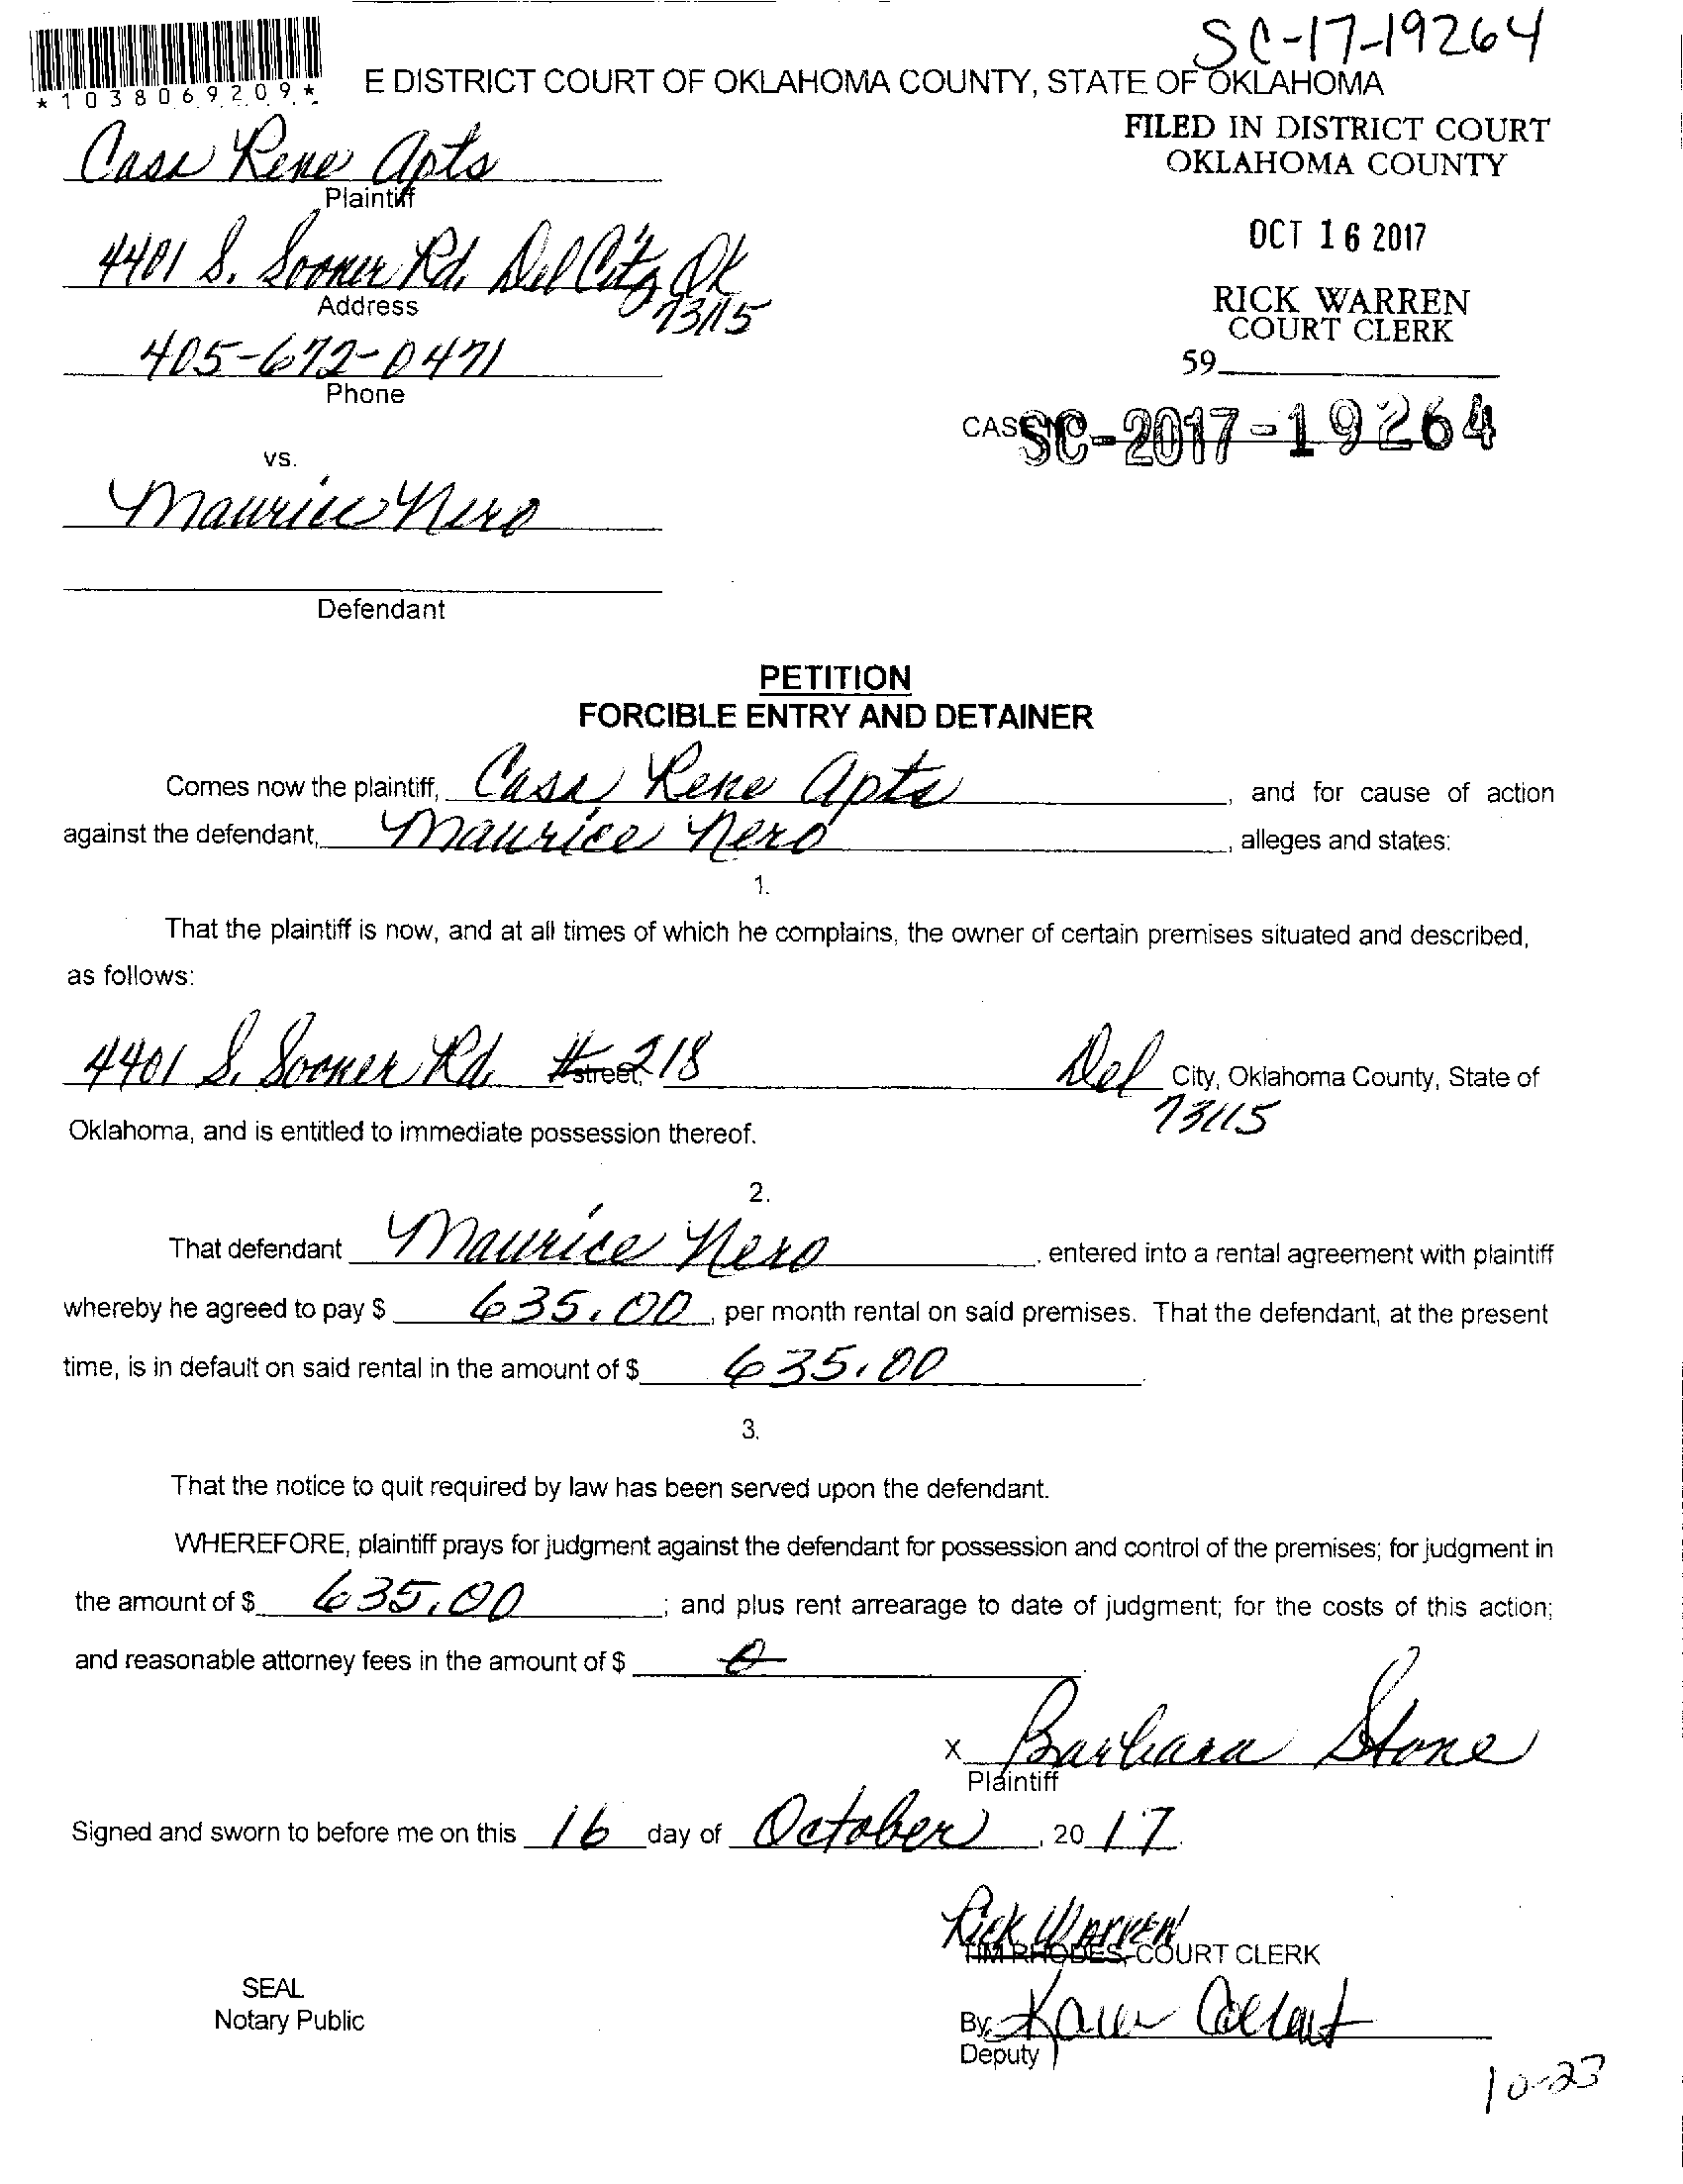 SC-17-19264
*1038069209*
E DISTRICT COURT OF OKLAHOMA COUNTY, STATE OF OKLAHOMA
FILED IN DISTRICT COURT
OKLAHOMA COUNTY
Casa Rene Apts
Plaintiff
OCT 16 2017
4401 S. Sooner Rd. Del City Ok
73115
Address
RICK WARREN
COURT CLERK
405-672-0471
Phone
59
CAS SC-2017-19264
vs.
Maurice Nero
Defendant
PETITION
FORCIBLE ENTRY AND DETAINER
Comes now the plaintiff, Casa Rene Apts, and for cause of action
against the defendant, Maurice Nero, alleges and states:
1.
That the plaintiff is now, and at all times of which he complains, the owner of certain premises situated and described,
as follows:
4401 S. Sooner Rd. #218 street, Del City, Oklahoma County, State of
73115
Oklahoma, and is entitled to immediate possession thereof.
2.
That defendant Maurice Nero, entered into a rental agreement with plaintiff
whereby he agreed to pay $ 635.00, per month rental on said premises. That the defendant, at the present
time, is in default on said rental in the amount of $ 635.00.
3.
That the notice to quit required by law has been served upon the defendant.
WHEREFORE, plaintiff prays for judgment against the defendant for possession and control of the premises; for judgment in
the amount of $ 635.00; and plus rent arrearage to date of judgment; for the costs of this action;
and reasonable attorney fees in the amount of $ 0.
x Barbara Stone
Plaintiff
Signed and sworn to before me on this 16 day of October, 2017.
Rick Warren
TIM RHODES, COURT CLERK
SEAL
Notary Public
By: Karen
Deputy
10-23